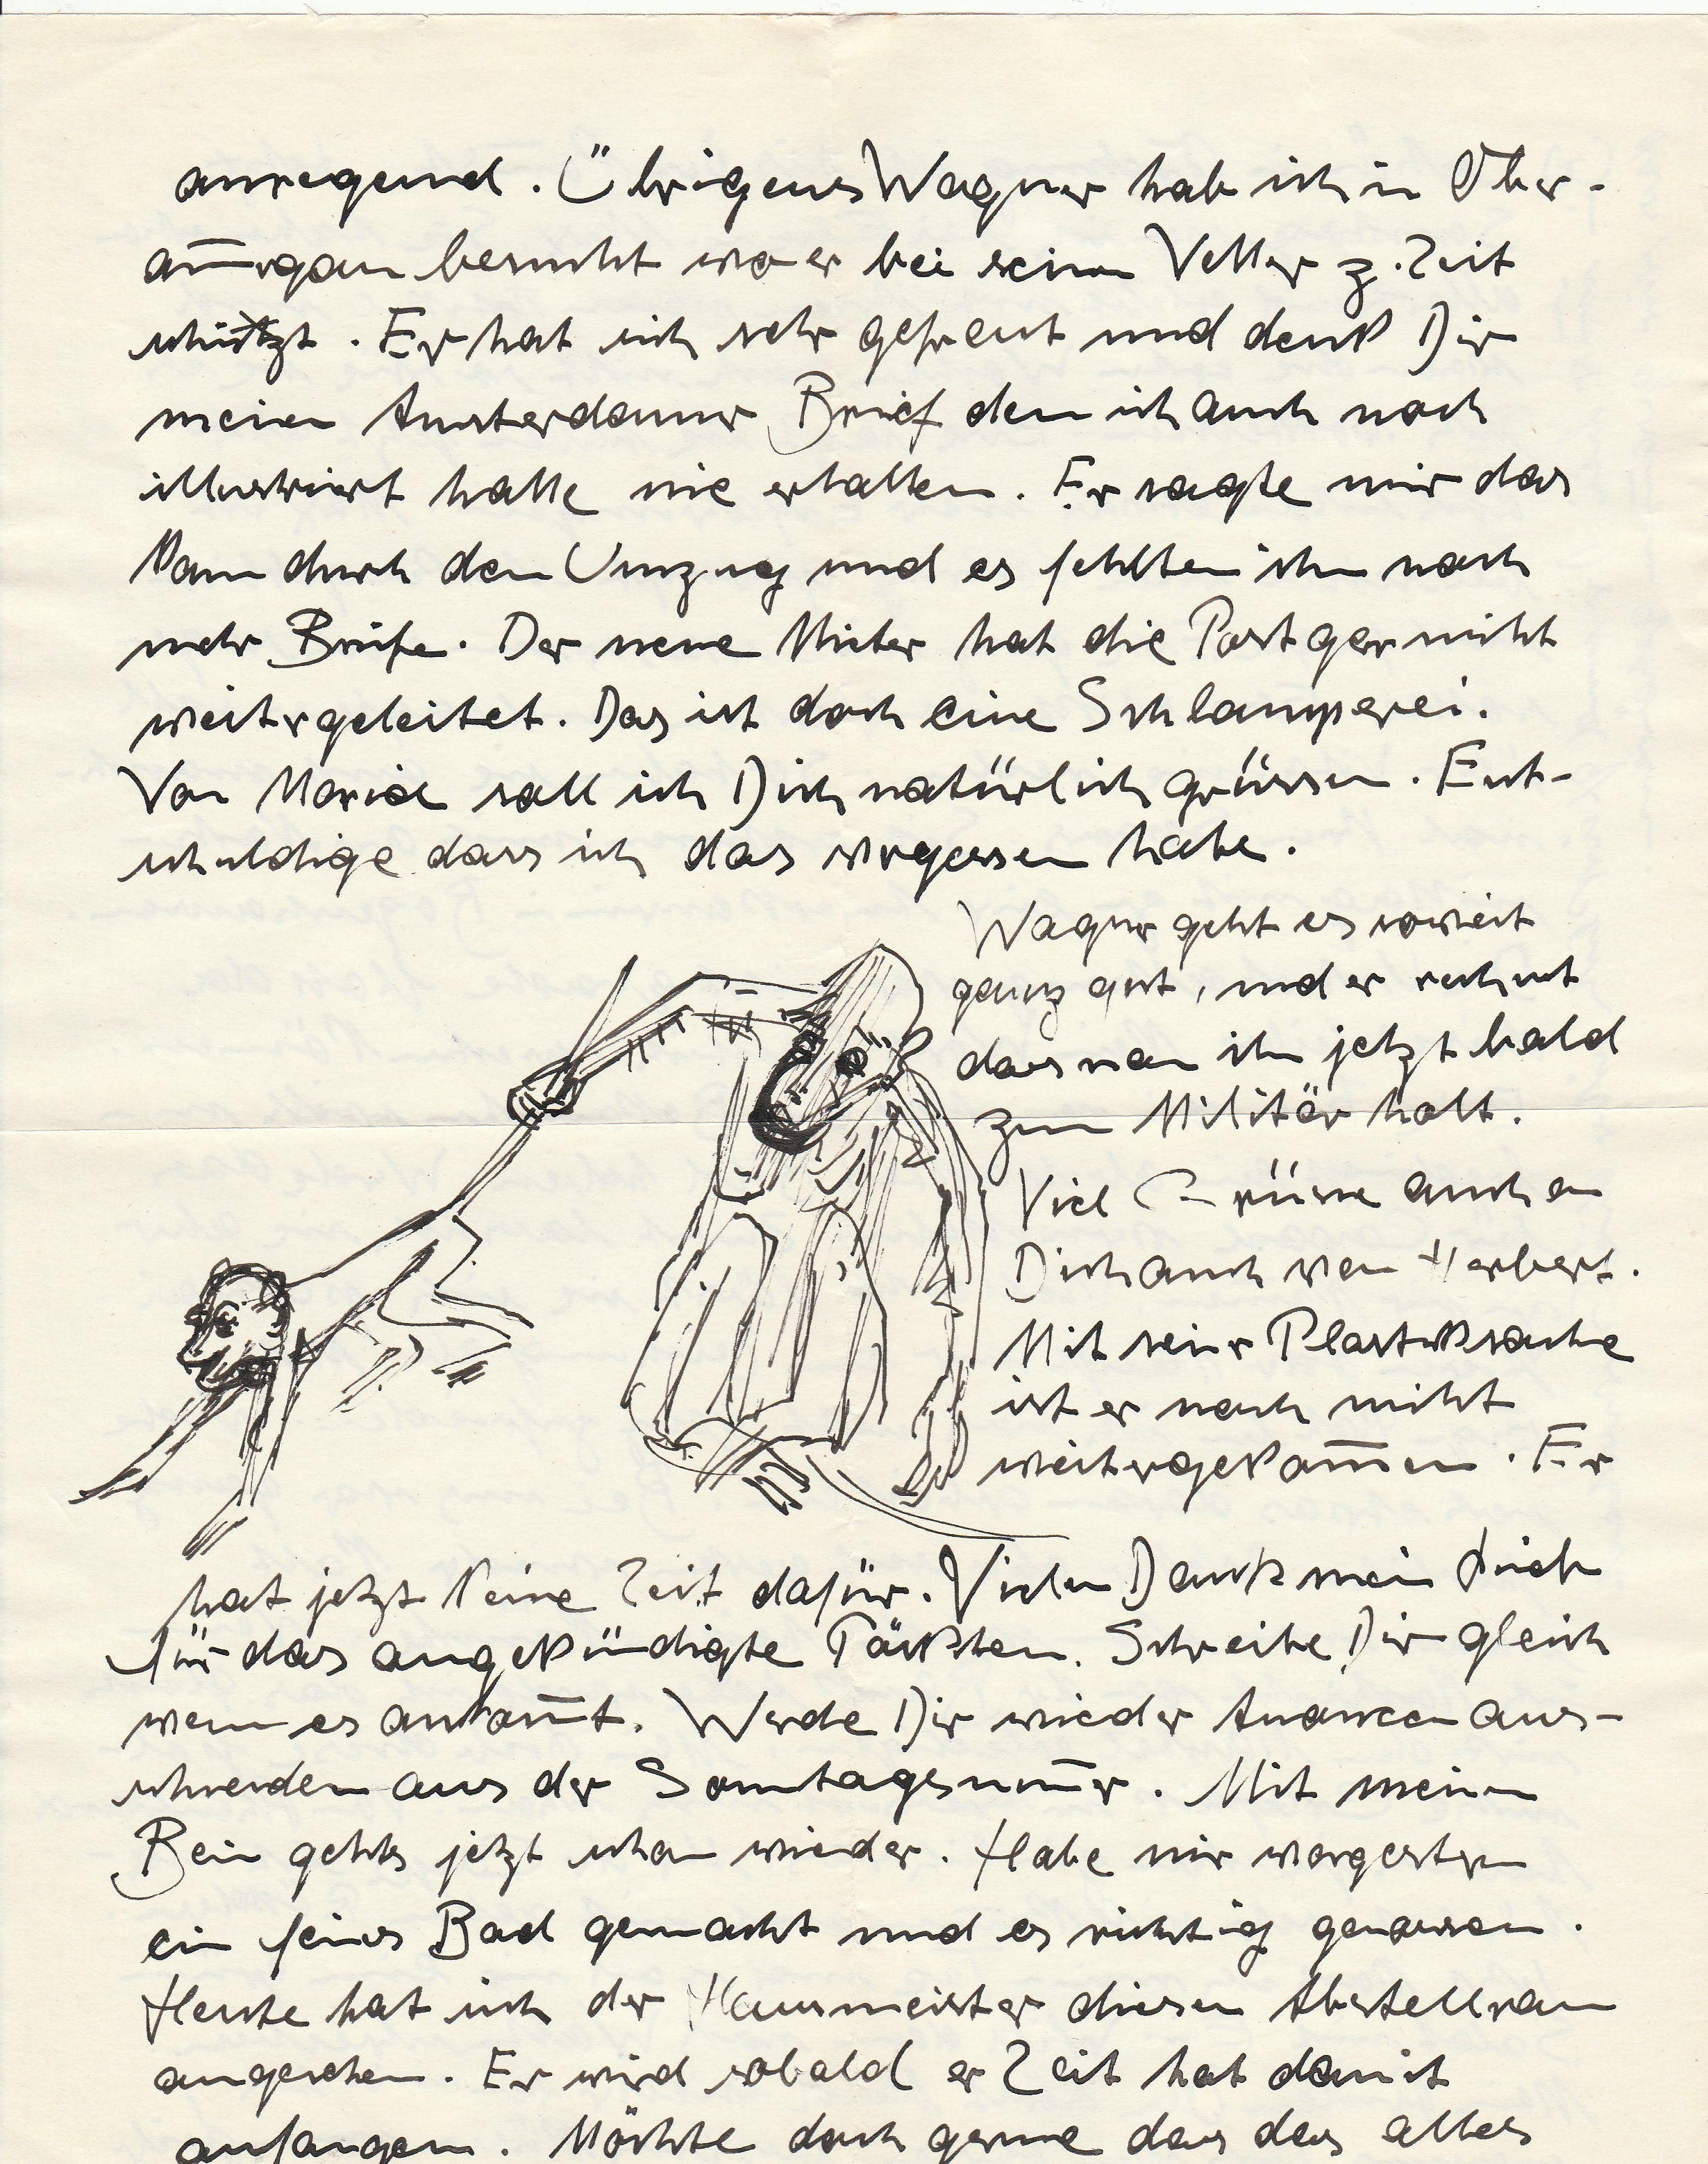 anregend. Übrigens Wagner hab ich in Ober-
am̅ergau besucht wo er bei seinem Vetter z. Zeit
schnitzt. Er hat sich sehr gefreut und denk Dir
meinen Amsterdamer Brief den ich auch noch
illustriert hatte nie erhalten. Er sagte mir das
kam durch den Umzug und es fehlten ihm noch
mehr Briefe. Der neue Mieter hat die Post gar nicht
weitergeleitet. Das ist doch eine Schlamperei.
Von Maria soll ich Dich natürlich grüssen. Ent-
schuldige dass ich das vergessen habe.
Wagner geht es soweit
ganz gut, und er rechnet
das man ihn jetzt bald
zum Militär holt.
Viel Grüsse auch an
Dich auch von Herbert.
Mit seiner Plastiksache
ist er noch nicht
weitergekom̅en. Er
hat jetzt keine Zeit dafür. Vielen Dank mein
für das angekündigte Päckchen. Schreibe Dir gleich
wenn es ankom̅t. Werde Dir wieder Annoncen aus-
schneiden aus der Sonntagsnum̅er. Mit meinem
Bein gehts jetzt schon wieder. Habe mir vorgestern
ein feines Bad gemacht und es richtig genossen.
Heute hat sich der Hausmeister diesen Abstellraum
angesehen. Er wird sobald er Zeit hat damit
anfangen. Möchte doch gerne das das alles